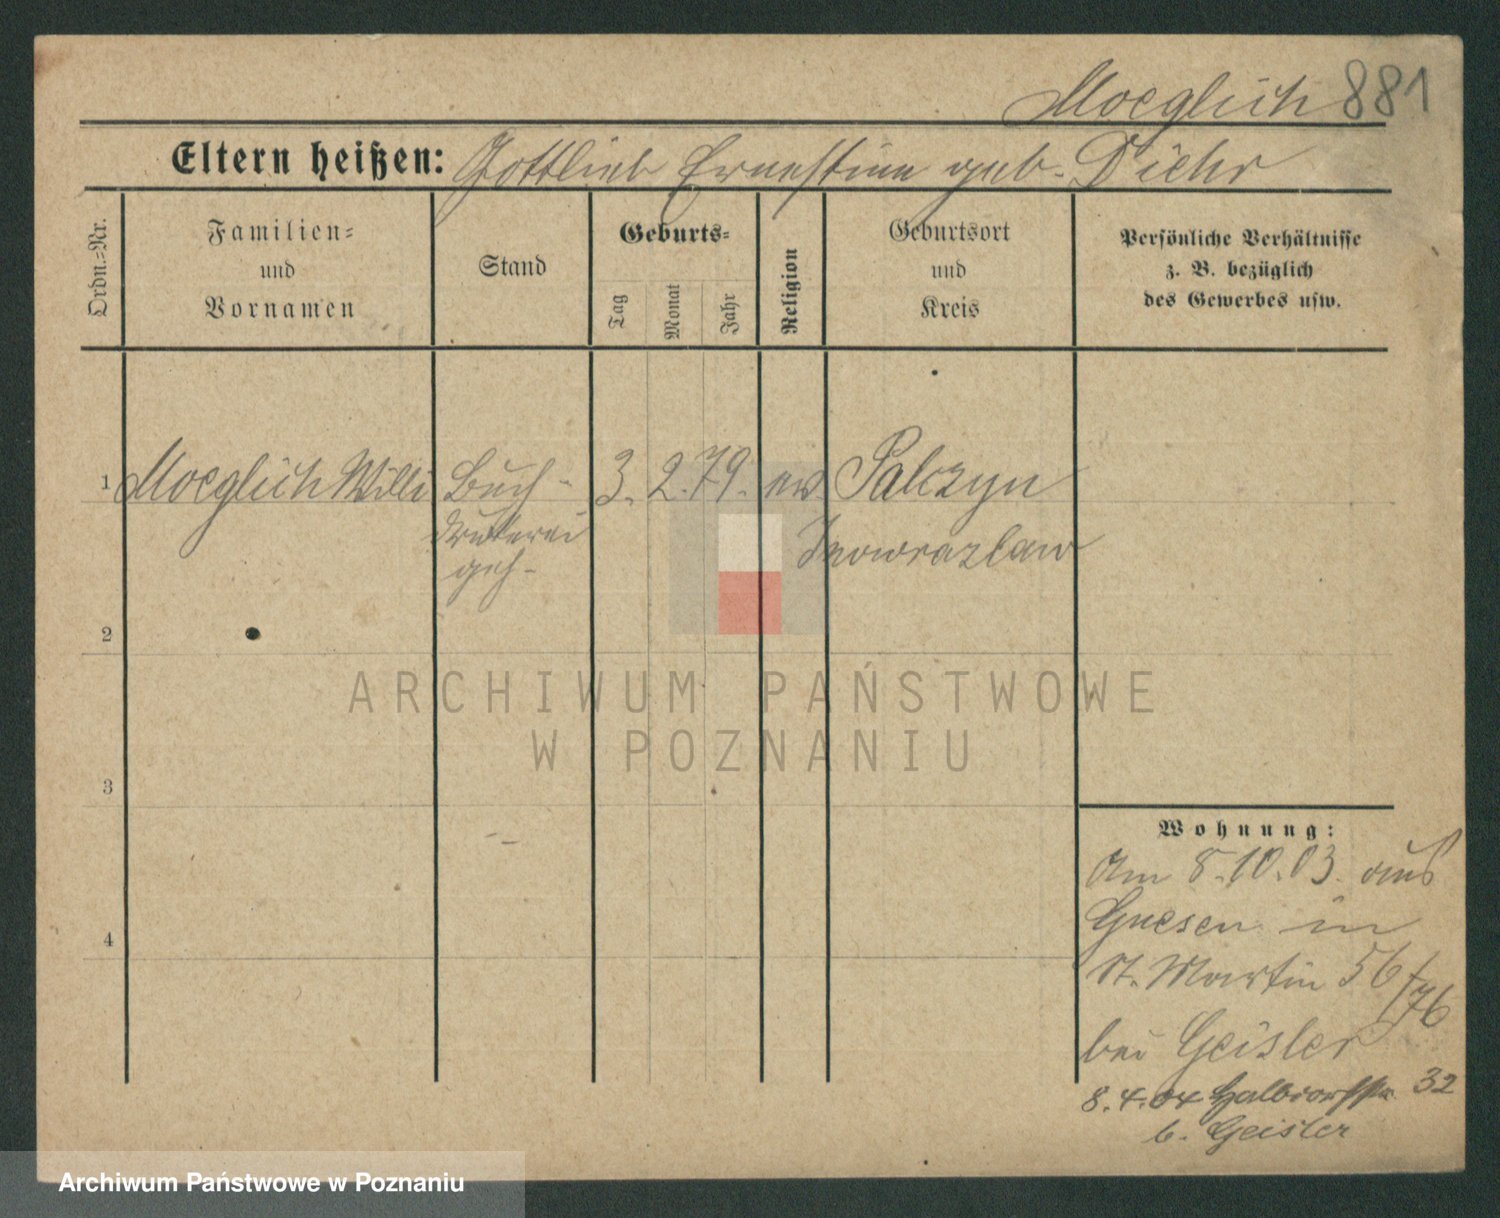 Moeglich 881
Eltern heißen: Gottlieb Ernestine geb. Diehr
Ordn.-Nr.
Familien-
und
Vornamen
Stand
Geburts-
Tag
Monat
Jahr
Religion
Geburtsort
und
Kreis
Persönliche Verhältnisse
z. B. bezüglich
des Gewerbes usw.
1 Moeglich Willi Buch- 3. 2. 79. ev Palczyn
druckerei Inowrazlaw
geh-
2
ARCHIWUM PAŃSTWOWE
W POZNANIU
3
Wohnung:
Am 8.10.03. aus
4
Gnesen in
St. Martin 56/76
bei Geisler
8.4.04 Halbdorfstr. 32
b. Geisler
Archiwum Państwowe w Poznaniu